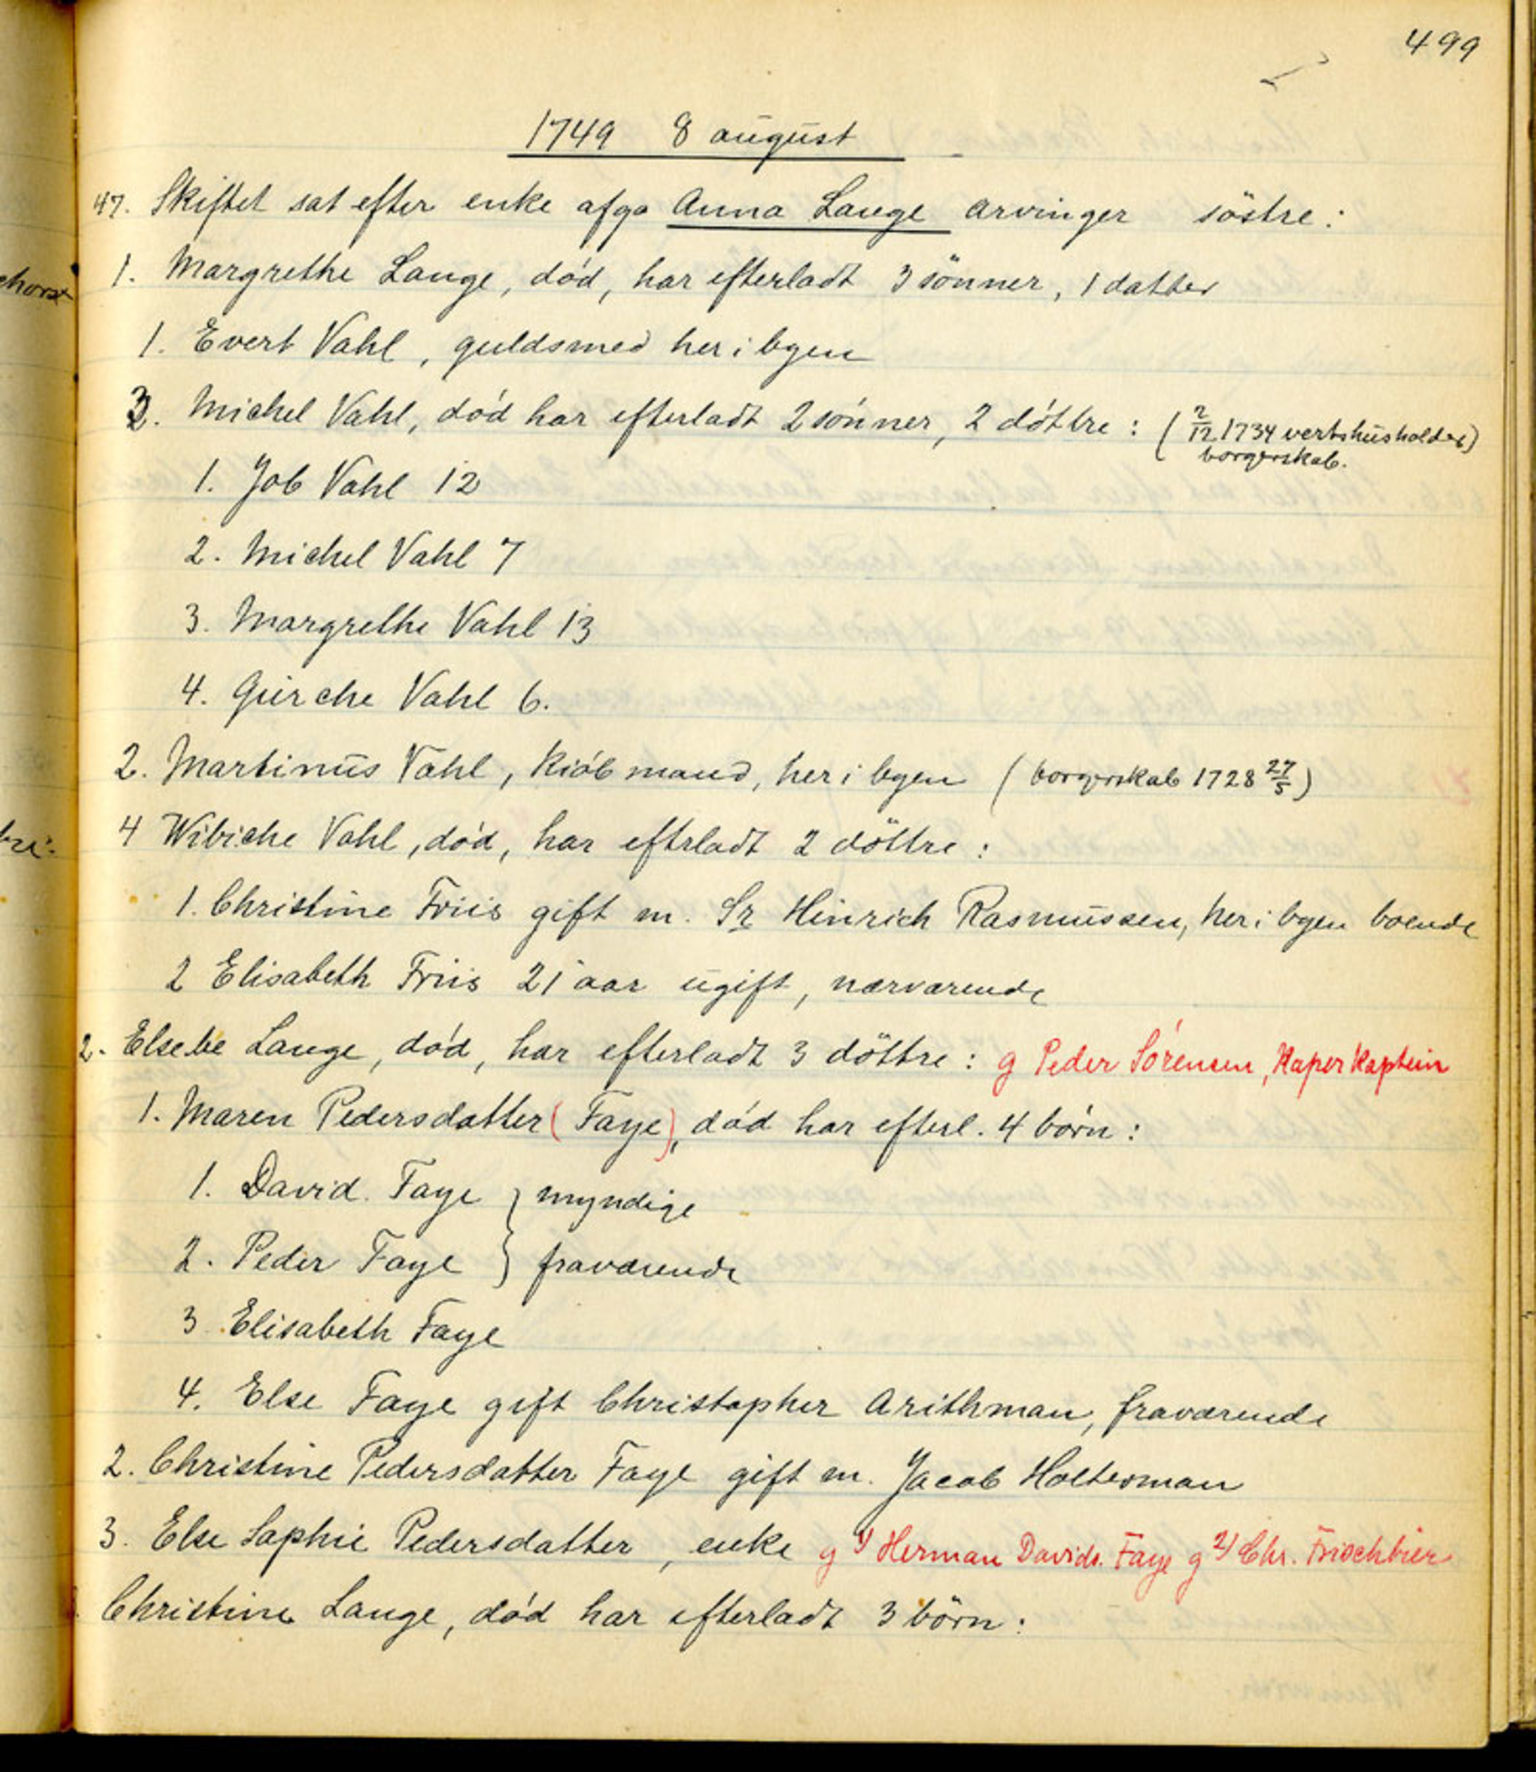 499
1749 8 august
47. Skiftet sat efter enke afga Anna Lange arvinger söstre:
1. Margrethe Lange, död, har efterladt 3 sönner, 1 datter
1. Evert Vahl, guldsmed her i byen
3. Michel Vahl, död har efterladt 2 sönner, 2 döttre: (2/12 1734 vertshusholder)
borgerskab.
1. Job Vahl 12
2. Michel Vahl 7
3. Margrethe Vahl 13
4. Gurche Vahl 6.
2. Martinus Vahl, kiöbmand, her i byen (borgerskab 1728 27/5)
4 Wibiche Vahl, död, har efterladt 2 döttre:
1. Christine Friis gift m. Sr Hinrich Rasmussen, her i byen boende
2 Elisabeth Friis 21 aar ugift, nærværende
2. Elsebe Lange, död, har efterladt 3 döttre: g Peder Sörensen, Kaperkaptein
1. Maren Pedersdatter (Faye), död har efterl. 4 börn:
1. David Faye } myndige
2. Peder Faye } fraværende
3 Elisabeth Faye
4. Else Faye gift Christopher Arithman, fraværende
2. Christine Pedersdatter Faye gift m. Jacob Holterman
3. Else Sophie Pedersdatter, enke g 1) Herman Davids. Faye g 2) Chr. Frischbier
Christine Lange, död har efterladt 3 börn: